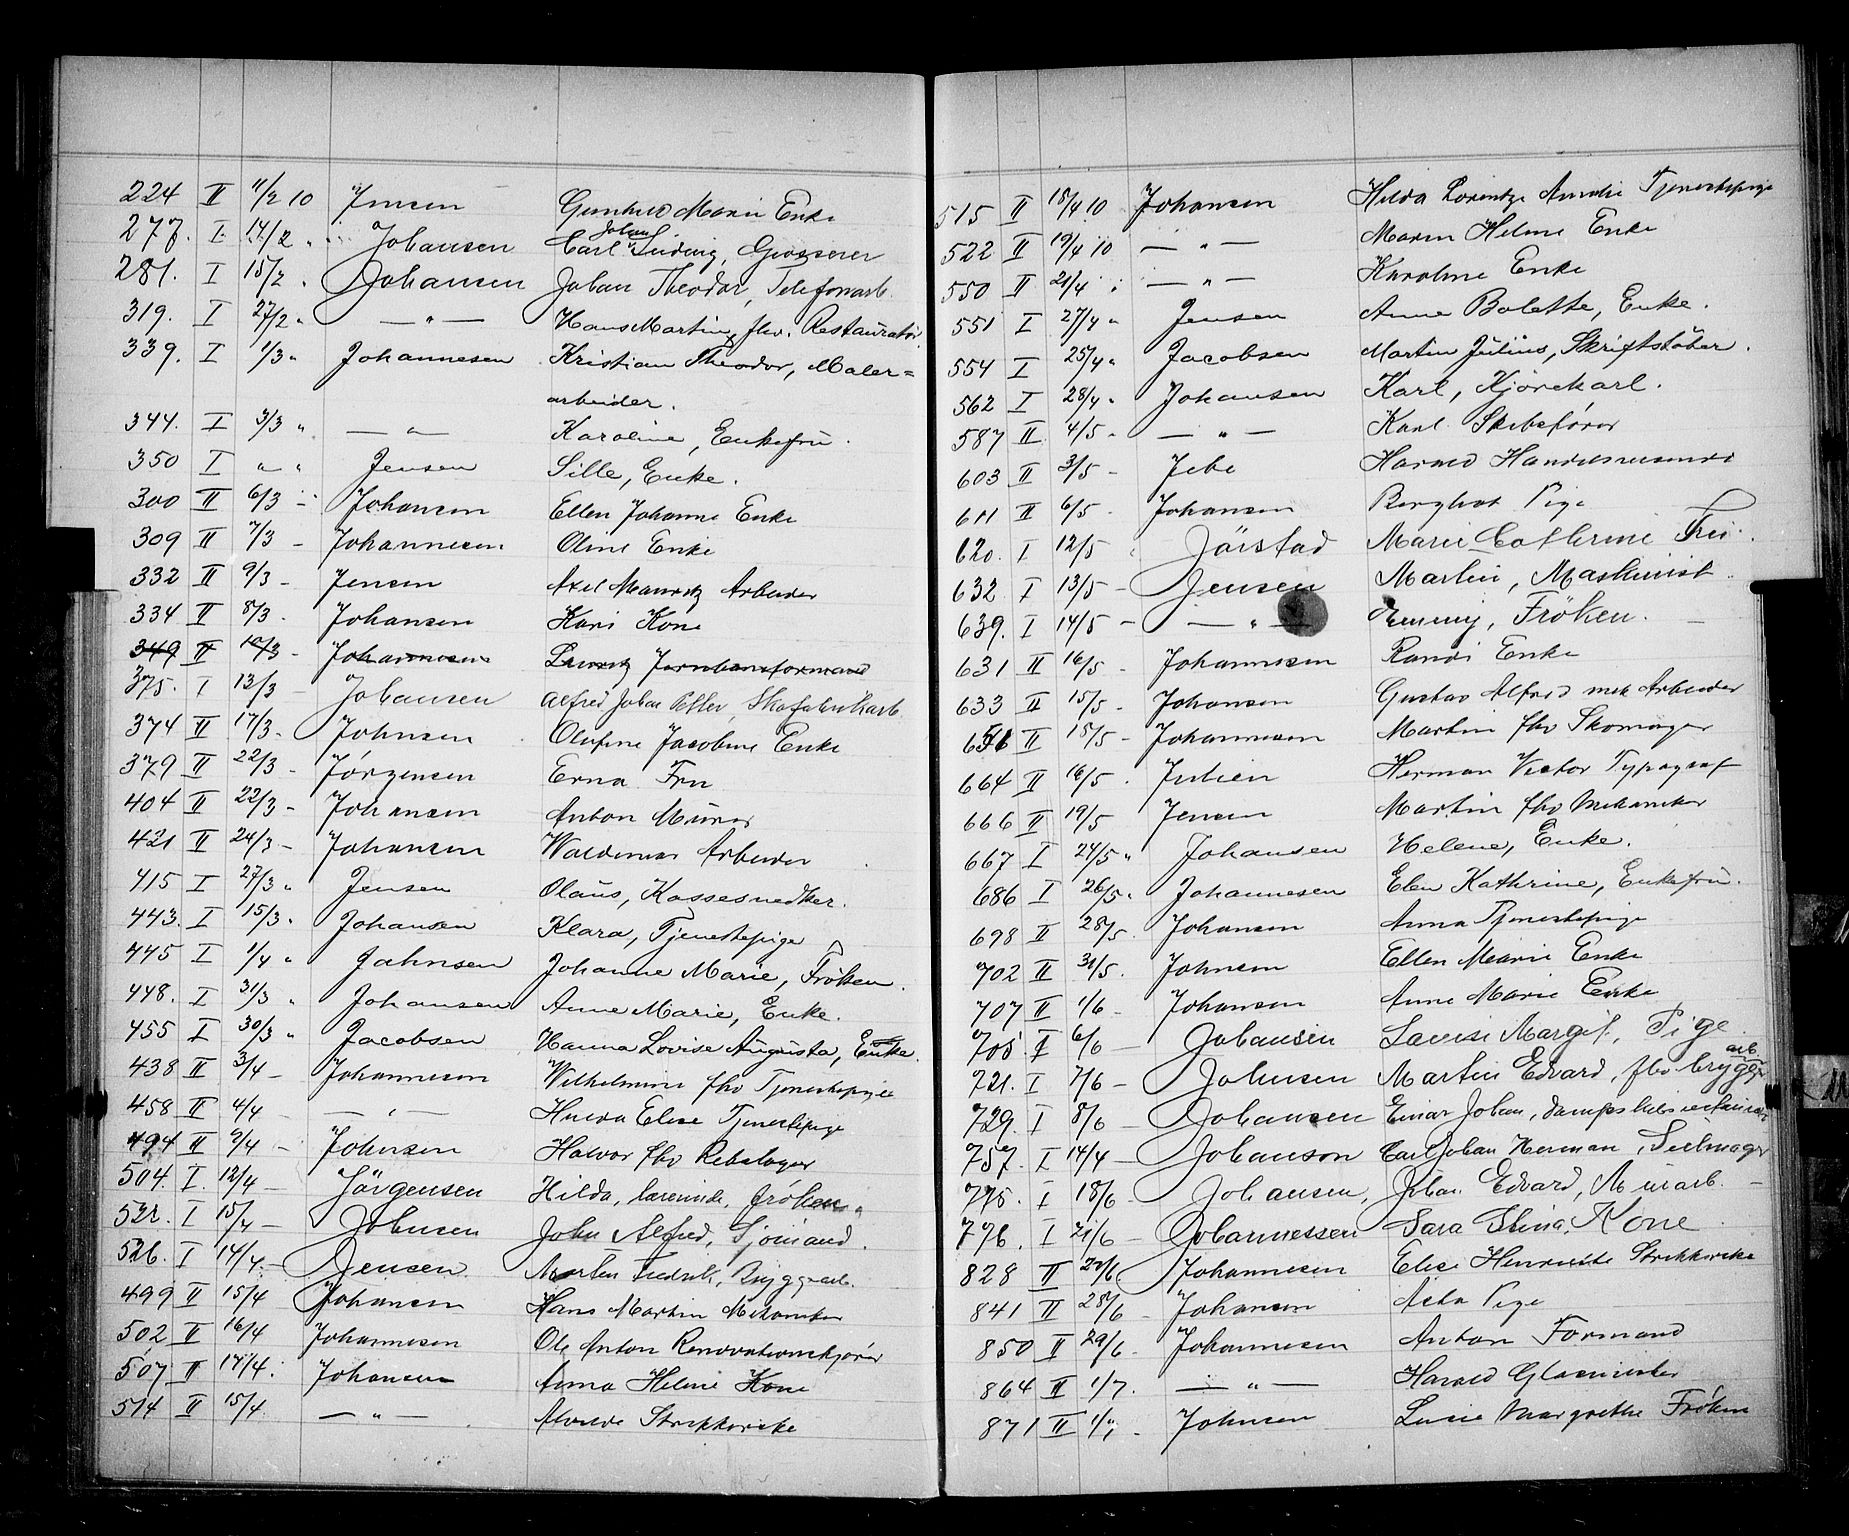 224 II 11/2 10 Jensen Gunhild Marie Enke
277. I 14/2 " Johansen Carl Johan Ludvig, Grosserer
281. I 15/2 " Johansen Johan Theodor, Telefonarb.
319. I 27/2 " — " — Hans Martin, fhv. Restauratør
339. I 1/3 " Johannesen Kristian Theodor, Maler=
arbeider.
344. I 3/3 " — " — Karoline, Enkefru.
350 I " " Jensen Sille, Enke.
300 II 6/3 - Johansen Ellen Johanne Enke
309 II 7/3 - Johannesen Oline Enke
332 II 9/3 - Jensen Axel Mauritz Arbeider
334 II 8/3 - Johansen Kari Kone
349 II 10/3 - Johannesen Lauritz Jernbaneformand
375. I 13/3 - Johansen Alfred Johan Petter, Skofabrikarb.
374 II 17/3 - Johnsen Olufine Jacobine Enke
379 II 22/3 - Jørgensen Erna Fru
404 II 22/3 - Johansen Anton Murer
421 II 24/3 - Johansen Waldemar Arbeider
415 I 27/3 " Jensen Olaus, Kassesnedker.
443. I 15/3 " Johansen Klara, Tjenestepige
445 I 1/4 " Jahnsen Johanne Marie, Frøken.
448. I 31/3 " Johansen Anne Marie, Enke.
455 I 30/3 " Jacobsen Hanna Lovise Augusta, Enke.
438 II 3/4 - Johannesen Wilhelmine fhv Tjenestepige
458 II 4/4 - — " — Hulda Elise Tjenestepige
494 II 9/4 - Johnsen Halvor fhv Rebslager
504. I. 12/4 - Jörgensen Hilda, lærerinde, frøken.
522. I 15/4 - Johnsen John Alfred, Sjömand.
526. I 14/4 - Jensen Morten Fredrik, Bryggearb.
499 II 15/4 Johansen Hans Martin Mekaniker
502 II 16/4 Johannesen Ole Anton Renovationskjører
507 II 17/4. Johansen Anna Heline Kone
514 II 15/4. — " — Alvilde Strikkerske
515 II 18/4 10 Johansen Hilda Lorentze Amalie Tjenestepige
522 II 19/4 10 — " — Maren Heline Enke
550 II 21/4 " — " — Karoline Enke
551 I 27/4 " Jensen Anne Bolette, Enke.
554 I 25/4 " Jacobsen Martin Julius, Skriftstöber.
562 I 28/4 " Johansen Karl, Kjörekarl.
587 II 4/5 - — " — Karl Skibsfører
603 II 3/5 - Jebe Harald Handelsreisende
611 II 6/5 - Johansen Borghot Pige
620. I 12/5 " Jörstad Marie Cathrine Fru.
632. I 13/5 - Jensen Martin, Maskinist.
639. I 14/5 - — " — Emmy, Fröken.
631 II 16/5 - Johannesen Randi Enke
633 II 15/5 - Johansen Gustav Alfred mek Arbeider
651 II 15/5 - Johannesen Martin fhv Skomager
664 II 16/5 - Julien Herman Victor Typograf
666 II 19/5 Jensen Martin fhv Mekaniker
667 I 24/5 " Johansen Helene, Enke.
686 I 26/5 " Johannesen Elen Kathrine, Enkefru.
698 II 28/5 Johansen Anna Tjenestepige
702 II 31/5. Johnsen Ellen Marie Enke
707 II 1/6 - Johansen Anne Marie Enke
705 I 6/6 — Johansen Lovise Margit, Pige
721. I 7/6 — Johnsen Martin Edvard, fhv brygge arb.
729. I 8/6 — Johansen Einar Johan, dampskibs
757. I 14/4 — Johanson Carl Johan Herman, Seilmager
775. I 18/6 — Johansen, Johan Edvard, Murarb.
776. I 21/6 — Johannessen Sara Elina, Kone
828 II 27/6 Johannesen Elise Henriette Strikkerske
841 II 28/6 - Johansen Asta Pige
850 II 29/6 - Johannesen Anton Formand
864 II 1/7. — " — Harald Glasmester
871 II 1/" - Johnsen Lucie Margrethe Frøken